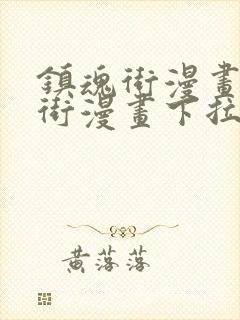 鎮魂街漫畫
街漫畫下拉
黃落落